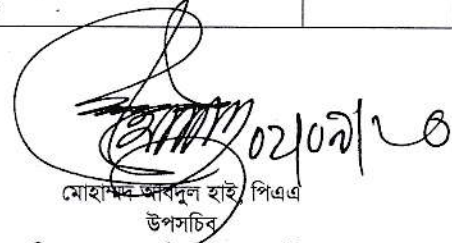 ০২|০৯|২৪
মোহাম্মদ আবদুল হাই, পিএএ
উপসচিব